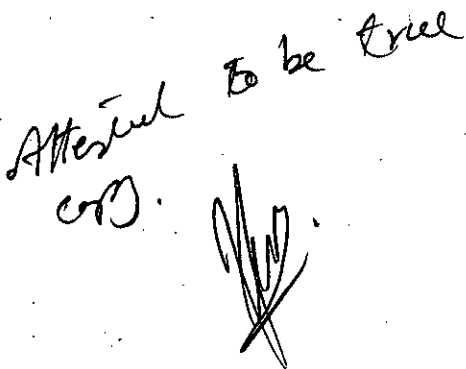 Attested to be true
copy.